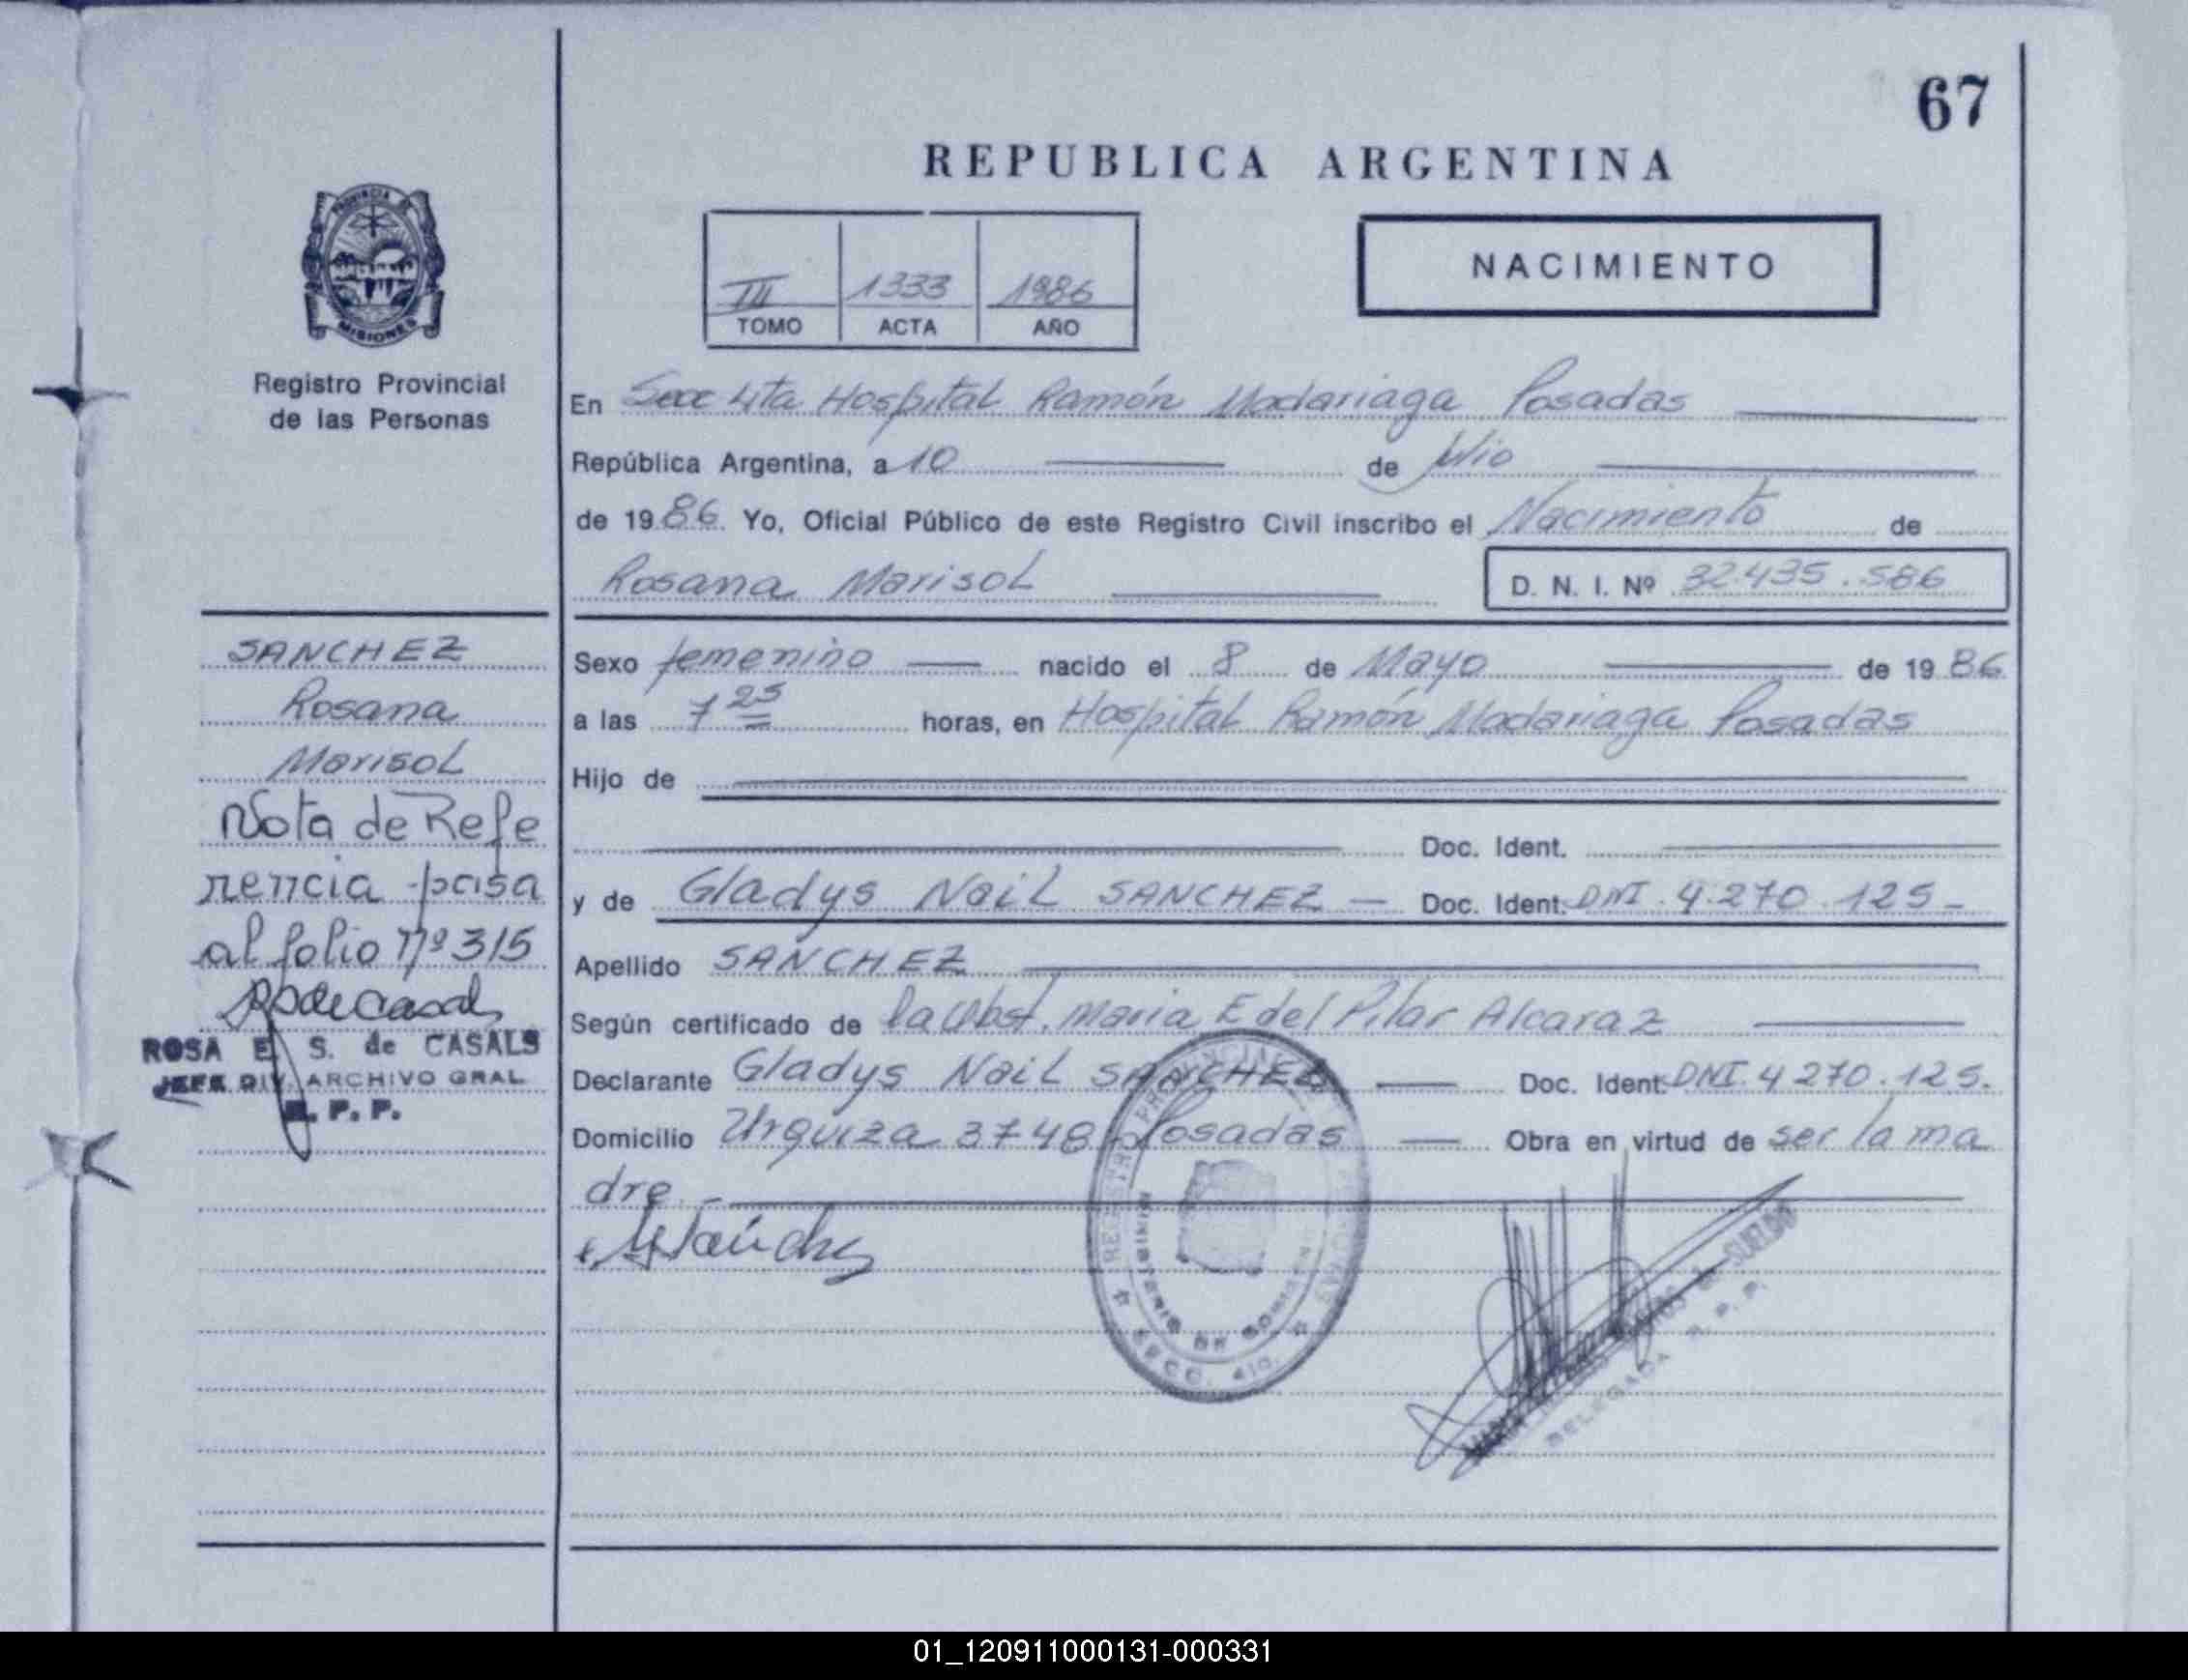 67
REPUBLICA ARGENTINA
PROVINCIA DE
MISIONES
Registro Provincial
de las Personas
III 1333 1986
TOMO ACTA AÑO
NACIMIENTO
En Secc 4ta Hospital Ramón Madariaga Posadas
República Argentina, a 10 de Julio
de 1986. Yo, Oficial Público de este Registro Civil inscribo el Nacimiento de
Rosana Marisol
D. N. I. Nº 32.435.586
Sexo femenino nacido el 8 de Mayo de 1986
a las 7 25 horas, en Hospital Ramón Madariaga Posadas
Hijo de
Doc. Ident.
y de Gladys Noil SANCHEZ — Doc. Ident. DNI. 4.270.125-
Apellido SANCHEZ
Según certificado de la Obst. Maria E del Pilar Alcaraz
Declarante Gladys Noil SANCHEZ — Doc. Ident. DNI. 4 270.125.
Domicilio Urquiza 3748 Posadas — Obra en virtud de ser la ma
dre.-
SANCHEZ
Rosana
Marisol
Nota de Refe
rencia pasa
al folio nº 315
ROSA E. S. de CASALS
JEFE DIV. ARCHIVO GRAL
R. P. P.
REGISTRO PROVINCIAL DE PERSONAS
MINISTERIO DE GOBIERNO
SECC. 4ta.
DELEGADA R. P. P.
01_120911000131-000331